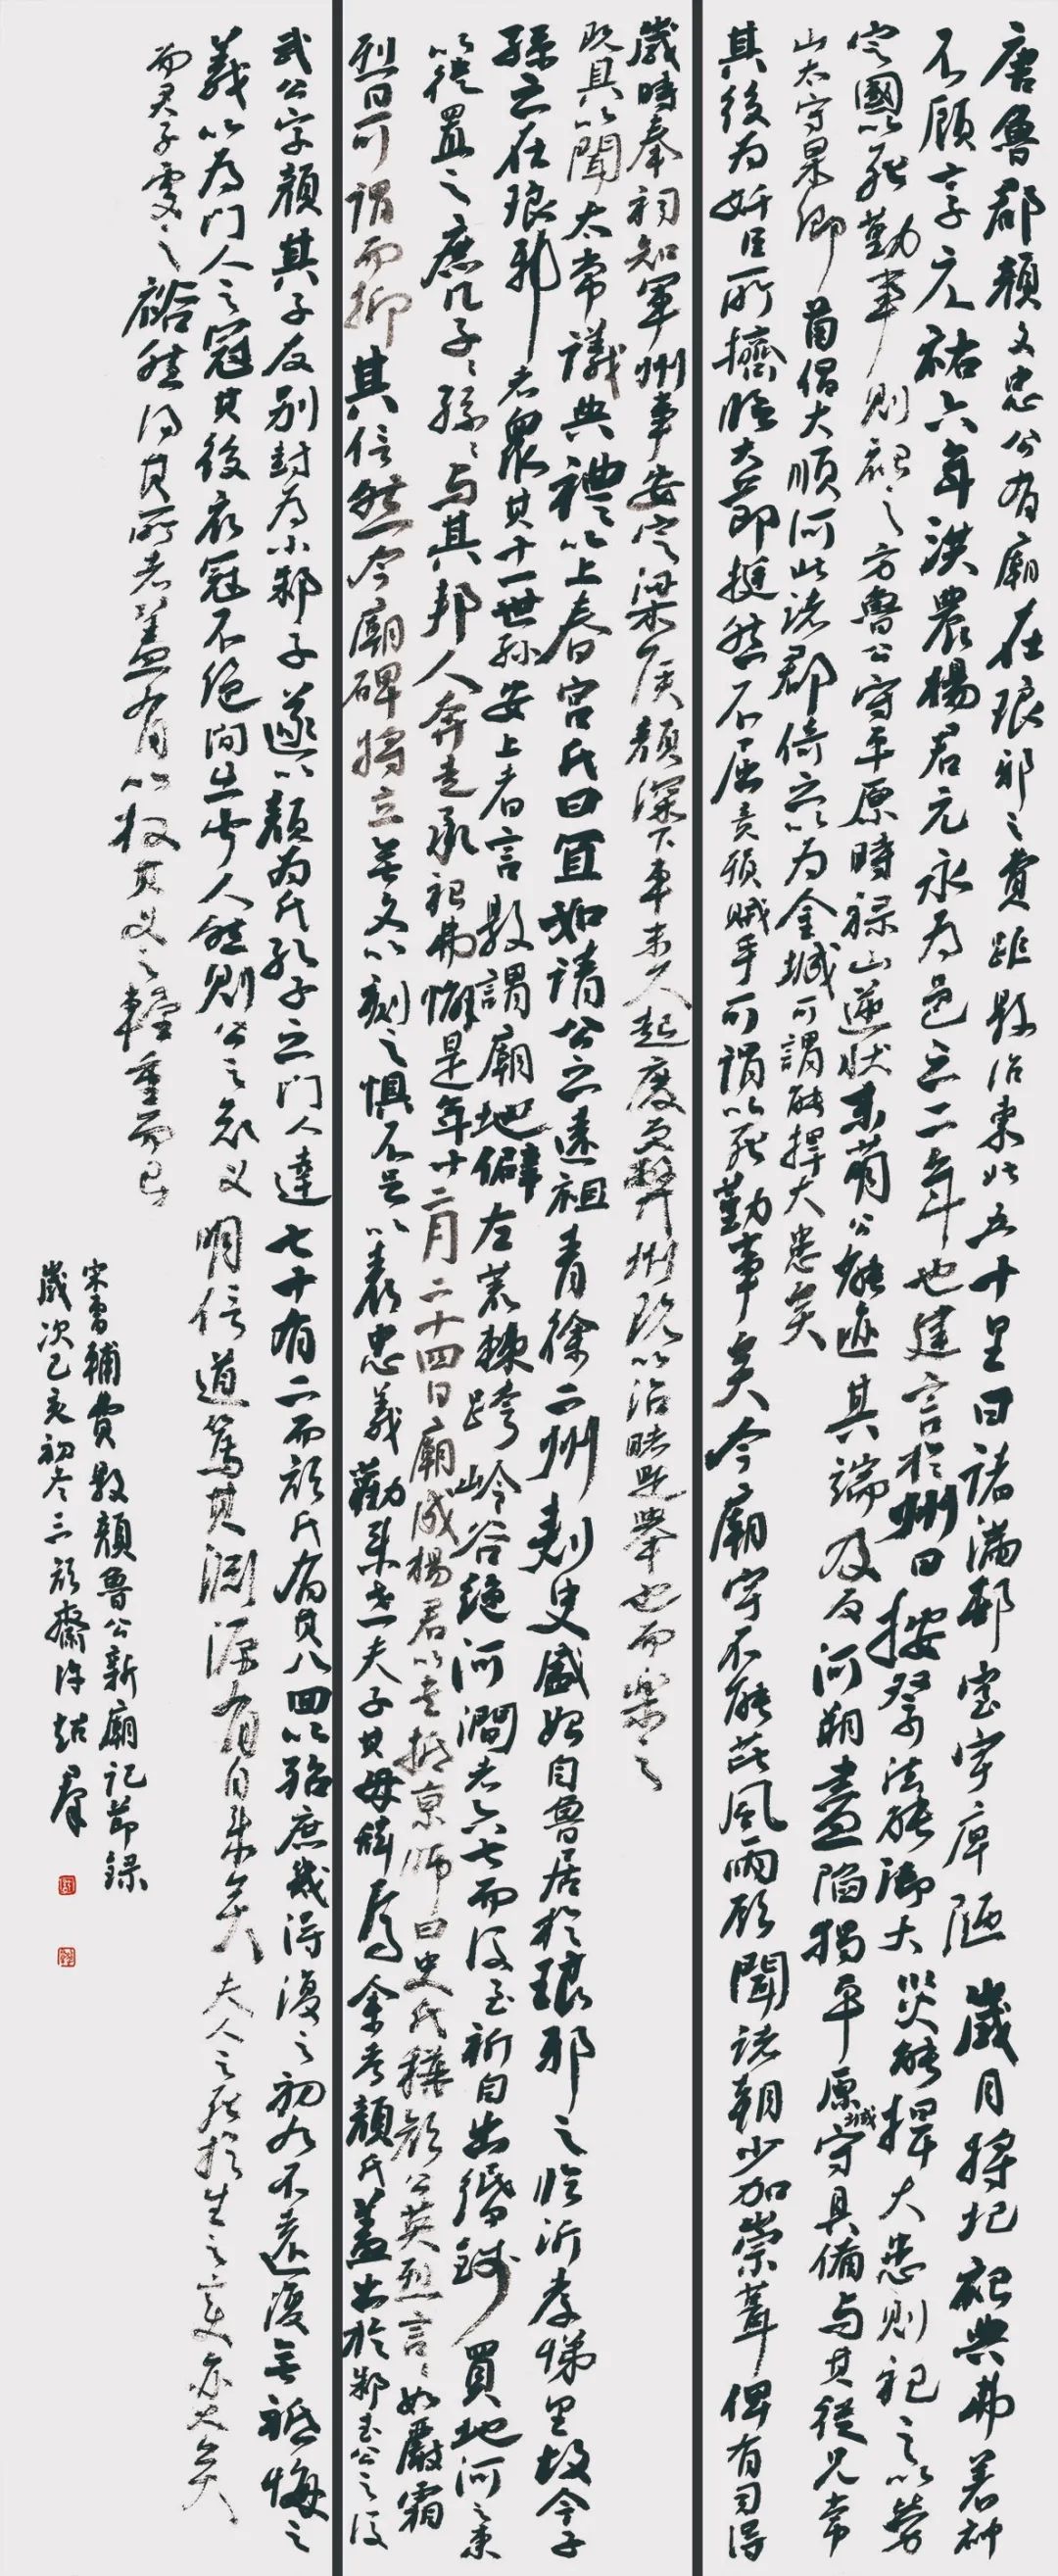 唐魯郡顏文忠公有廟在琅邪之費距縣治東北五十里曰諸滿邨室宇庳陋歲月將圮祀典弗著神
不顧享元祐六年洪農楊君元永為邑之二年也建言於州曰按祭法能御大災能捍大患則祀之以勞
定國以死勤事則祀之方魯公守平原時祿山逆狀未萌公能迹其端及反河朔盡陷獨平原城守具備與其從兄常
山太守杲卿首倡大順河北諸郡倚之以為金城可謂能捍大患矣
其後為奸臣所擠臨大節挺然不屈竟殞賊手可謂以死勤事矣今廟宇不能芘風雨顧聞諸朝少加崇葺俾有司得
歲時奉祠知軍州事安定梁侯顏深下車未久起廢完弊州既以治睹是舉也而樂之
既具以聞太常議典禮以上春官氏曰宜如請公之遠祖青徐二州刺史盛始自魯居於琅邪之臨沂孝悌里故今子
孫之在琅邪者眾其十一世孫安上者言縣謂廟地僻左荒棘跨岭谷絕河澗者六七而後至祈自出緡錢買地河之東
以徙置之庶几子子孫孫與其邦人奔走承祀弗懈是年十二月二十四日廟成楊君以書抵京師曰史氏稱顏公英烈言言如嚴霜
烈日可謂而抑其信然今廟碑將立無文以刻之懼不足以表忠義勸來世夫子其毋辭焉余考顏氏蓋出於邾武公之後
武公字顏其子友別封為小邾子遂以顏為氏孔子之門人達七十有二而顏氏有其八回以殆庶幾得復之初九不遠復無祗悔之
義以為門人之冠其後衣冠不絕間生聞人然則公之忠義明信道篤其淵源有自來矣夫人之死於生之變亦大矣
而君子處之裕然得其所者蓋有以权其义之輕重而已
宋曹輔費縣顏魯公新廟記節錄
歲次己亥初冬三顏齋許超群